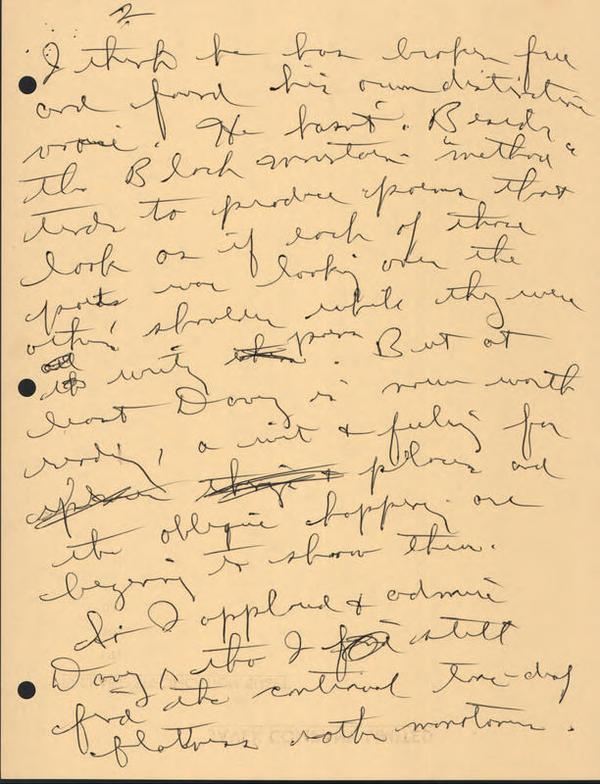 2
I think he has broken free
and found his own distinctive
voice. He hasn't. Besides
the Black Mountain "method"
tends to produce poems that
look as if each of those
poets was looking over the
others' shoulder while they were
all writing poems. But at
least Davey is now worth
reading, a wit & feeling for
places and
the oblique happening are
beginning to show thru.
So I applaud & admire
Davey, tho I still
find the continual tone-deaf
flatness rather monotonous.